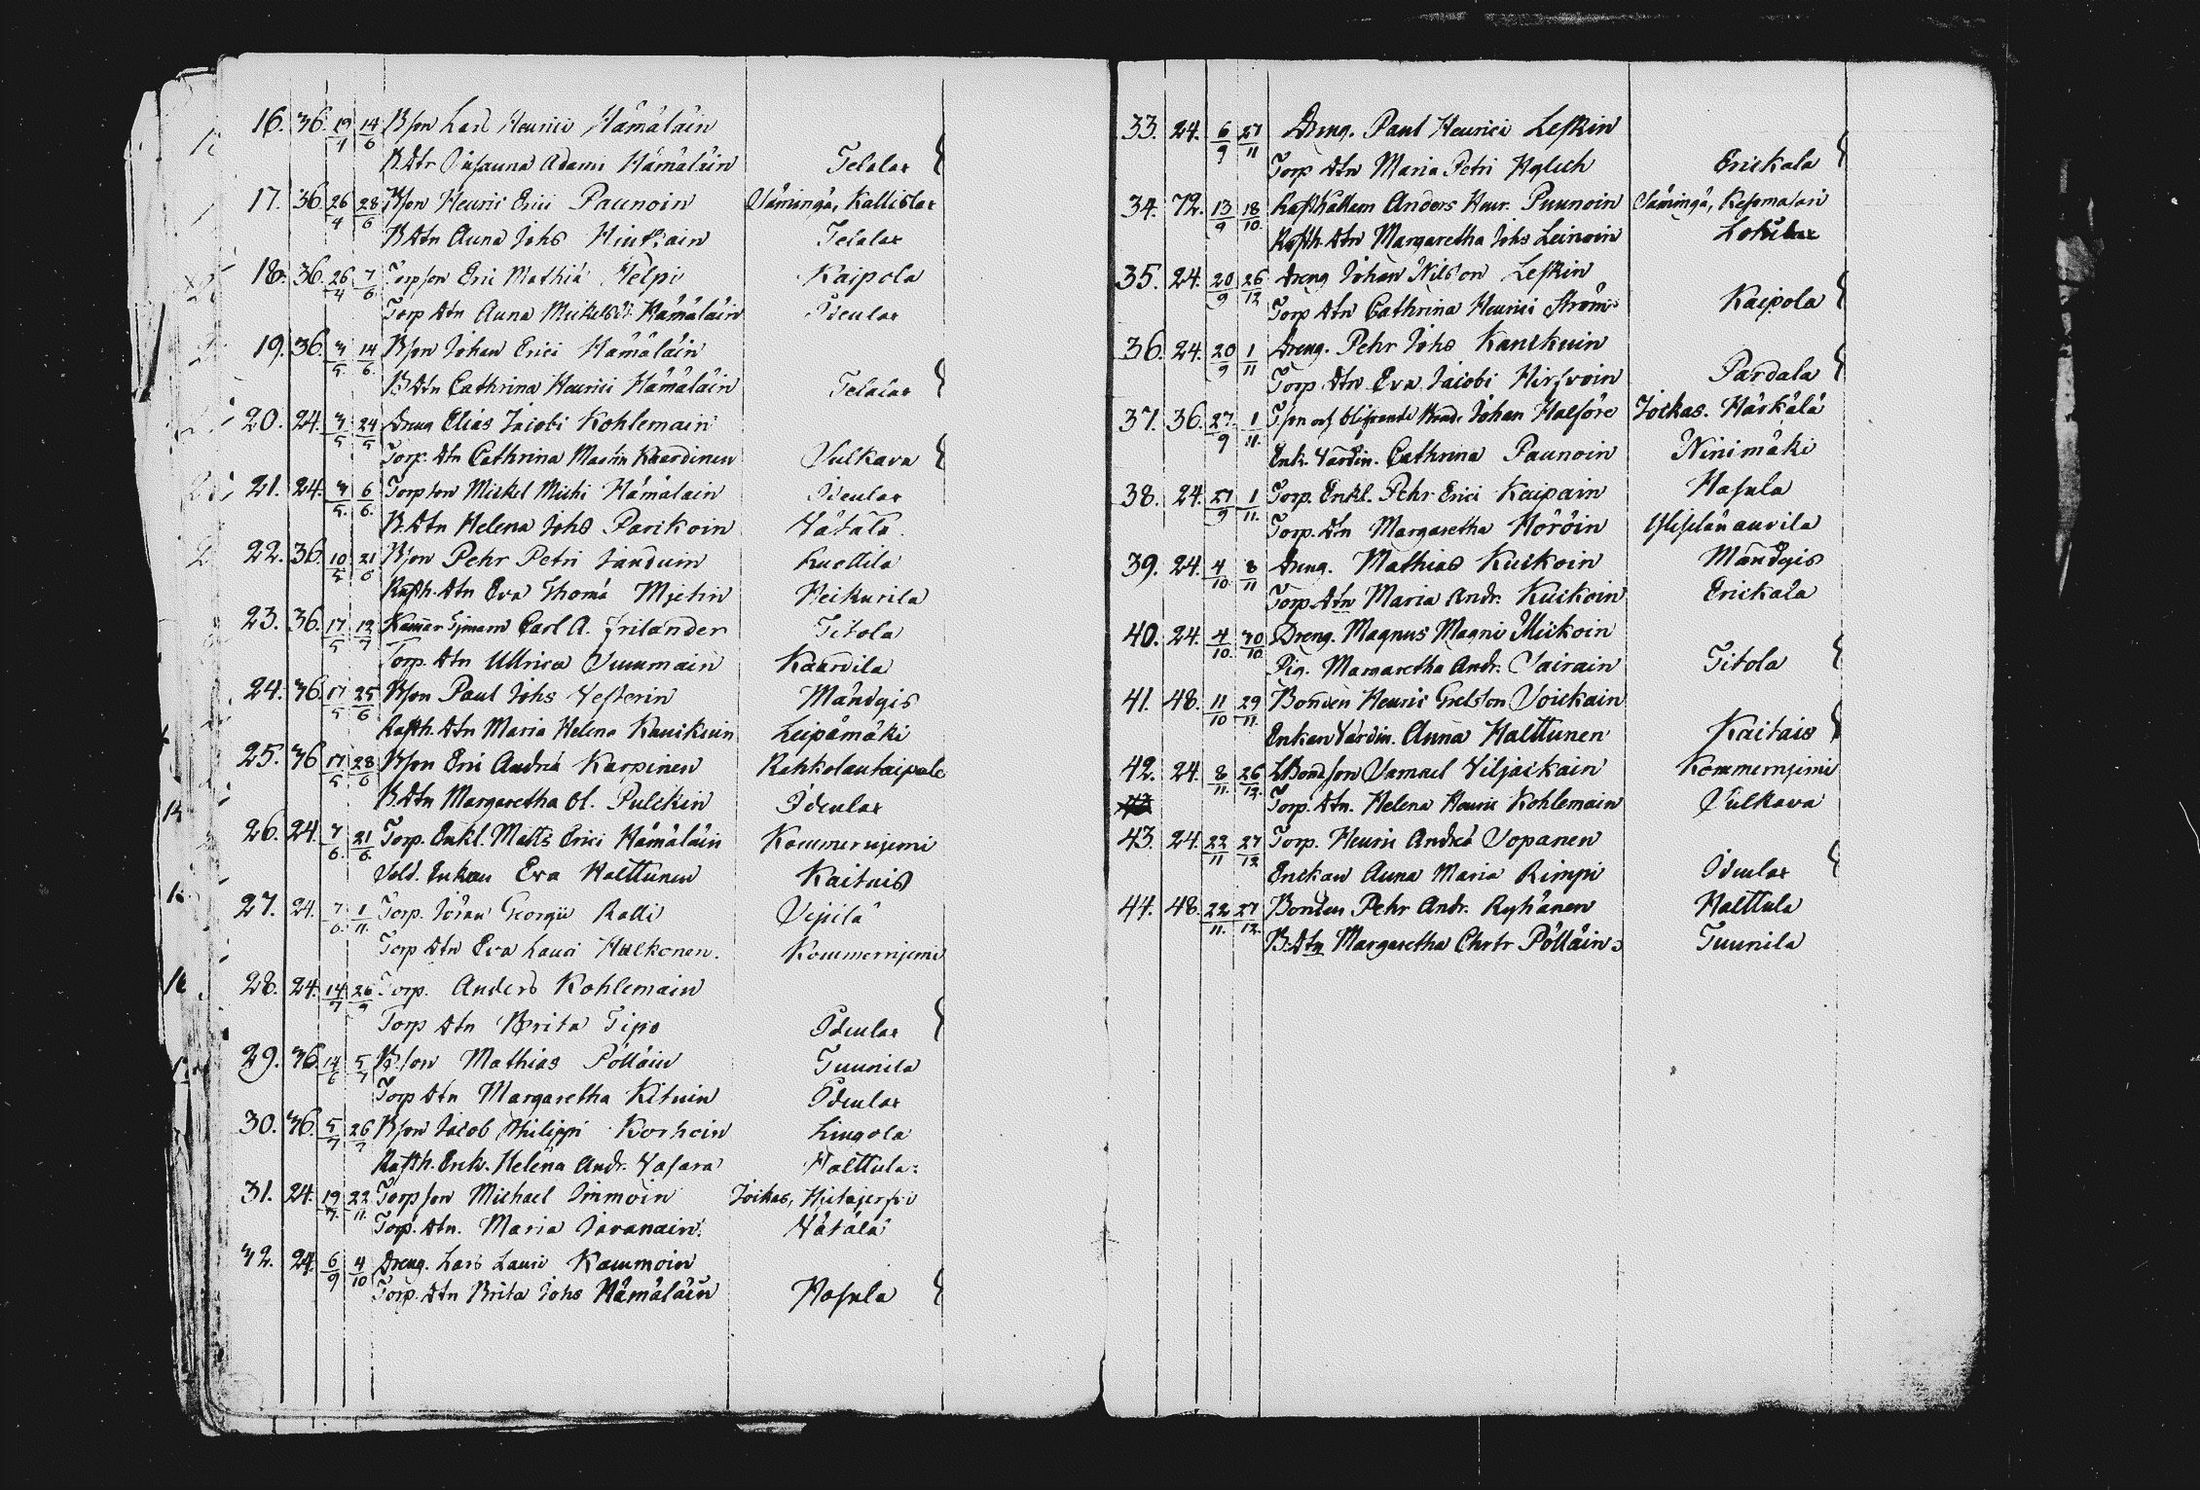 16. 36. 19/4 14/6 Bson Lars Henrici Hämäläin
B.Dtr Susanna Adami Hämäläin Telalax
17. 36. 26/4 28/6 Bson Henric Erici Paunoin Sämingä, Kallislax
B.Dtn Anna Johs Hintsain Telalax
18. 36. 26/4 7/6. Torpson Eric Mathiæ Helpi Kaipola
Torp Dtn Anna Mickelsd: Hämäläin Ideulax
19. 36. 3/5. 14/6. Bson Johan Erici Hämäläin
B.Dtn Cathrina Henrici Hämäläin Telalax
20. 24. 3/5 24/5 Dreng Elias Jacobi Kohlemain
Torp. Dtn Cathrina Martin Kaardinen Sulkava
21. 24. 3/5. 6/6. Torpson Mickel Michi Hämäläin Ideulax
B.Dtn Helena Johs Parikoin Wätälä.
22. 36. 10/5 21/6 Bson Pehr Petri Janduin Kuettila
Rusth. Dtn Eva Thomæ Mjetin Heikurila
23. 36. 17/5 12/7 Kamar Tjenaren Carl A. Frilander Titola
Torp. Dtn Ullrica Summain Kaarvila
24. 36 17/5 25/6 Bson Paul Johs Westerin Mandgis
Rusth. Dtn Maria Helena Kauikuin Leipämäki
25. 36 17/5 28/6 Bson Eric Andreæ Karpinen Rahkolantaipale
B.Dtn Margaretha Ol. Pulckin Ideulax
26. 24. 7/6. 21/6. Torp. Enkl. Matts Erici Hämäläin Kommernjemi
Sold. Enkan Eva Halttunen Kaitais
27. 24. 7/6. 1/11. Torp. Jöran Georgii Ralli Sipilä
Torp Dtn Eva Lauri Hulkonen. Kommernjemi
28. 24. 14/7 26/9 Torp. Anders Kohlemain
Torp Dtn Brita Tipo Ideulax
29. 36. 14/6 5/7 B.son Mathias Pöllain Tuunila
Torp Dtn Margaretha Kituin Ideulax
30. 36. 5/7 26/7 Bson Jacob Philippi Korhoin Lingola
Rusth. Enk. Helena Andr. Wasara Halttula:
31. 24. 19/7. 22/11. Torpson Michael Immoin Joikas, Hietajerfvi
Torp. Dtn. Maria Javanain. Wätälä
32. 24. 6/9 4/10 Dreng. Lars Lauri Kaumoin
Torp. Dtn Brita Johs Hämäläin Hasula
33. 24. 6/9 27/11 Dreng. Paul Henrici Leskin
Torp Dtn Maria Petri Hglich Erickala
34. 72. 13/9 18/10. Rusthållarn Anders Henr. Puunoin Sämingä,
Rusth. Dtn Margaretha Johs Leinoin
35. 24. 20/9 26/12 Dreng Johan Nilsson Leskin
Torp Dtn Cathrina Henrici Ström: Kaipola
36. 24. 20/9 1/11 Dreng. Pehr Johs Kanckuin
Torp. Dtn Eva Jacobi Hirfvoin Pardala
37. 36. 27/9 1/11. Johan Halföre Joikas. Härkälä
Enk. Värdin. Cathrina Paunoin Ninimäki
38. 24. 27/9 1/11. Torp. Enkl. Pehr Erici Kaipain Hasula
Torp. Dtn Margaretha Höröin
39. 24. 4/10. 8/11 Dreng. Mathias Kuikoin Mandgis
Torp. Dtn Maria Andr. Kuikoin Erickala
40. 24. 4/10. 30/10 Dreng. Magnus Magni Muikoin
Pig. Margaretha Andr. Sairain Titola
41. 48. 11/10 29/11. Bonden Henric Grelsson Voickain
Enkan Värdin. Anna Halttunen Kaitais
42. 24. 8/11. 26/12. Samuel Viljackain Kommernjemi
Torp. Dtn. Helena Henric Kohlemain Sulkava
43. 24. 22/11 27/12 Torp. Henric Andreæ Sopanen
Enckan Anna Maria Rimpi Ideulax
44. 48. 22/11. 27/12. Bonden Pehr Andr. Ryhänen Halttula
B.Dtn Margaretha Chrtr Pölläin: Tuunila